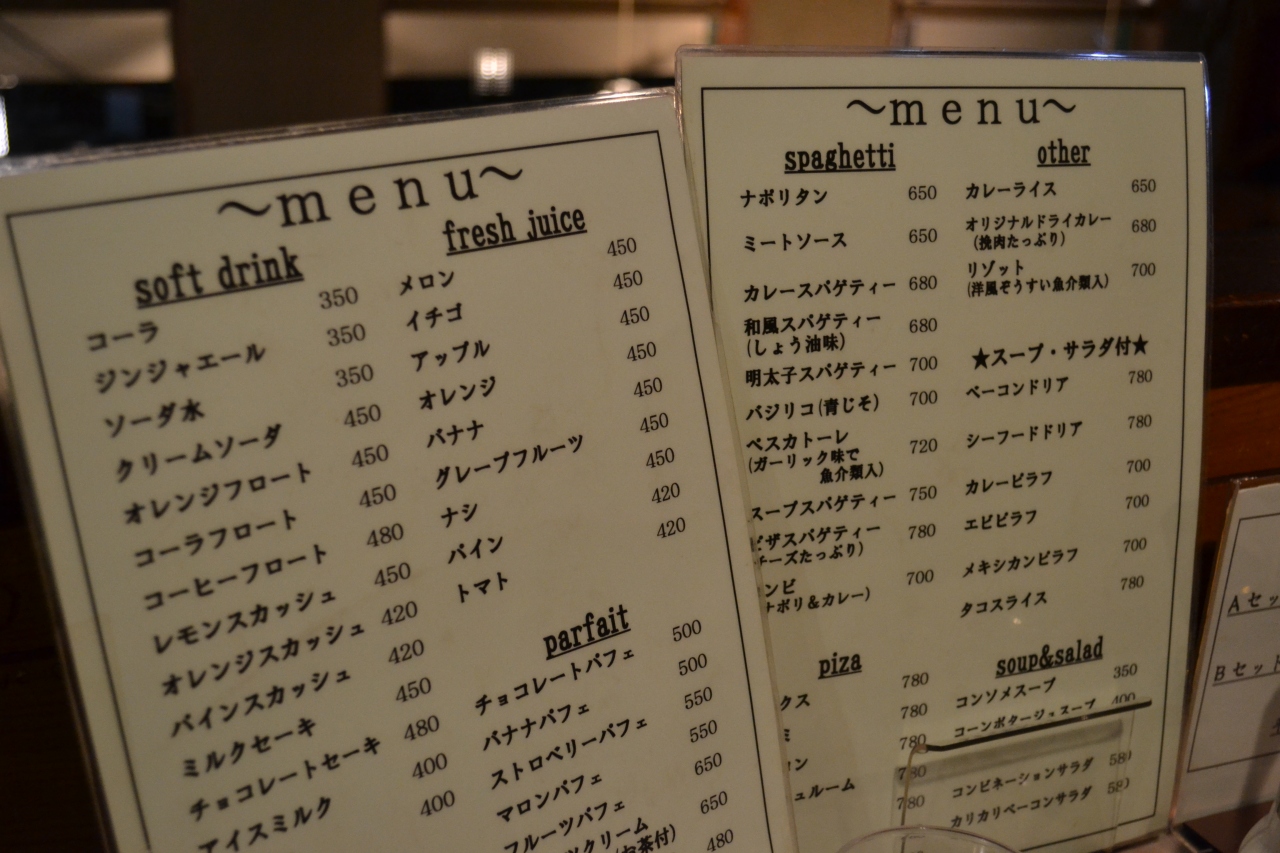 ～menu～
soft drink
コーラ 350
ジンジャエール 350
ソーダ水 350
クリームソーダ 450
オレンジフロート 450
コーラフロート 450
コーヒーフロート 480
レモンスカッシュ 450
オレンジスカッシュ 420
パインスカッシュ 420
ミルクセーキ 450
チョコレートセーキ 480
アイスミルク 400
400
fresh juice
メロン 450
イチゴ 450
アップル 450
オレンジ 450
バナナ 450
グレープフルーツ 450
ナシ 450
パイン 420
トマト 420
parfait
チョコレートパフェ 500
バナナパフェ 500
ストロベリーパフェ 550
マロンパフェ 550
フルーツパフェ 650
クリーム 650
(お茶付) 480
～menu～
spaghetti
ナポリタン 650
ミートソース 650
カレースパゲティー 680
和風スパゲティー 680
(しょう油味)
明太子スパゲティー 700
バジリコ(青じそ) 700
ペスカトーレ 720
(ガーリック味で
魚介類入)
スープスパゲティー 750
ピザスパゲティー 780
チーズたっぷり)
ンビ 700
ナポリ＆カレー)
piza
クス 780
ミ 780
ン 780
ュルーム 780
780
other
カレーライス 650
オリジナルドライカレー 680
(挽肉たっぷり)
リゾット 700
(洋風ぞうすい魚介類入)
★スープ・サラダ付★
ベーコンドリア 780
シーフードドリア 780
カレーピラフ 700
エビピラフ 700
メキシカンピラフ 700
タコスライス 780
soup&salad
コンソメスープ 350
コーンポタージュスープ 400
コンビネーションサラダ 580
カリカリベーコンサラダ 580
Aセッ
Bセット